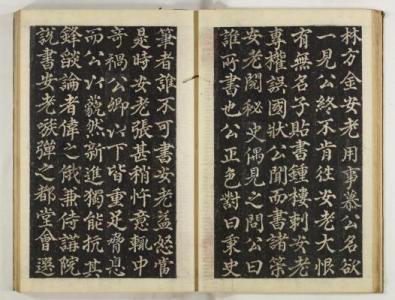 林方安老用事慕公名欲
一見公終不肯往安老大恨
有無名子貼書鐘樓刺安老
專權誤國狀公聞而書諸策
安老閱秘史偶見之問公曰
誰所書也公正色對曰秉史
筆者誰不可書安老益怒當
是時安老張甚稍忤意輒中
奇禍公卿以下皆重足脅息
而公以藐然新進獨能抗其
鋒燄論者偉之俄兼侍講院
說書安老彈之都堂會選